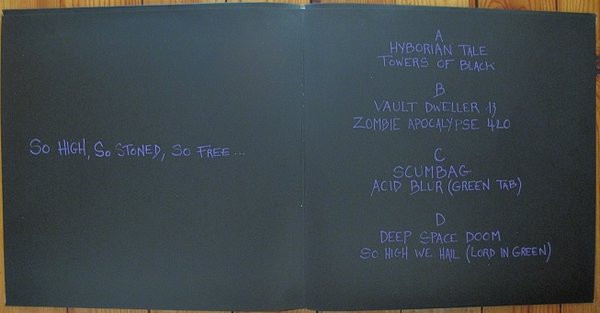 So HIGH, So STONED, So FREE ...
A
HYBORIAN TALE
TOWERS OF BLACK
B
VAULT DWELLER 13
ZOMBIE APOCALYPSE 420
C
SCUMBAG
ACID BLUR (GREEN TAB)
D
DEEP SPACE DOOM
SO HIGH WE HAIL (LORD IN GREEN)